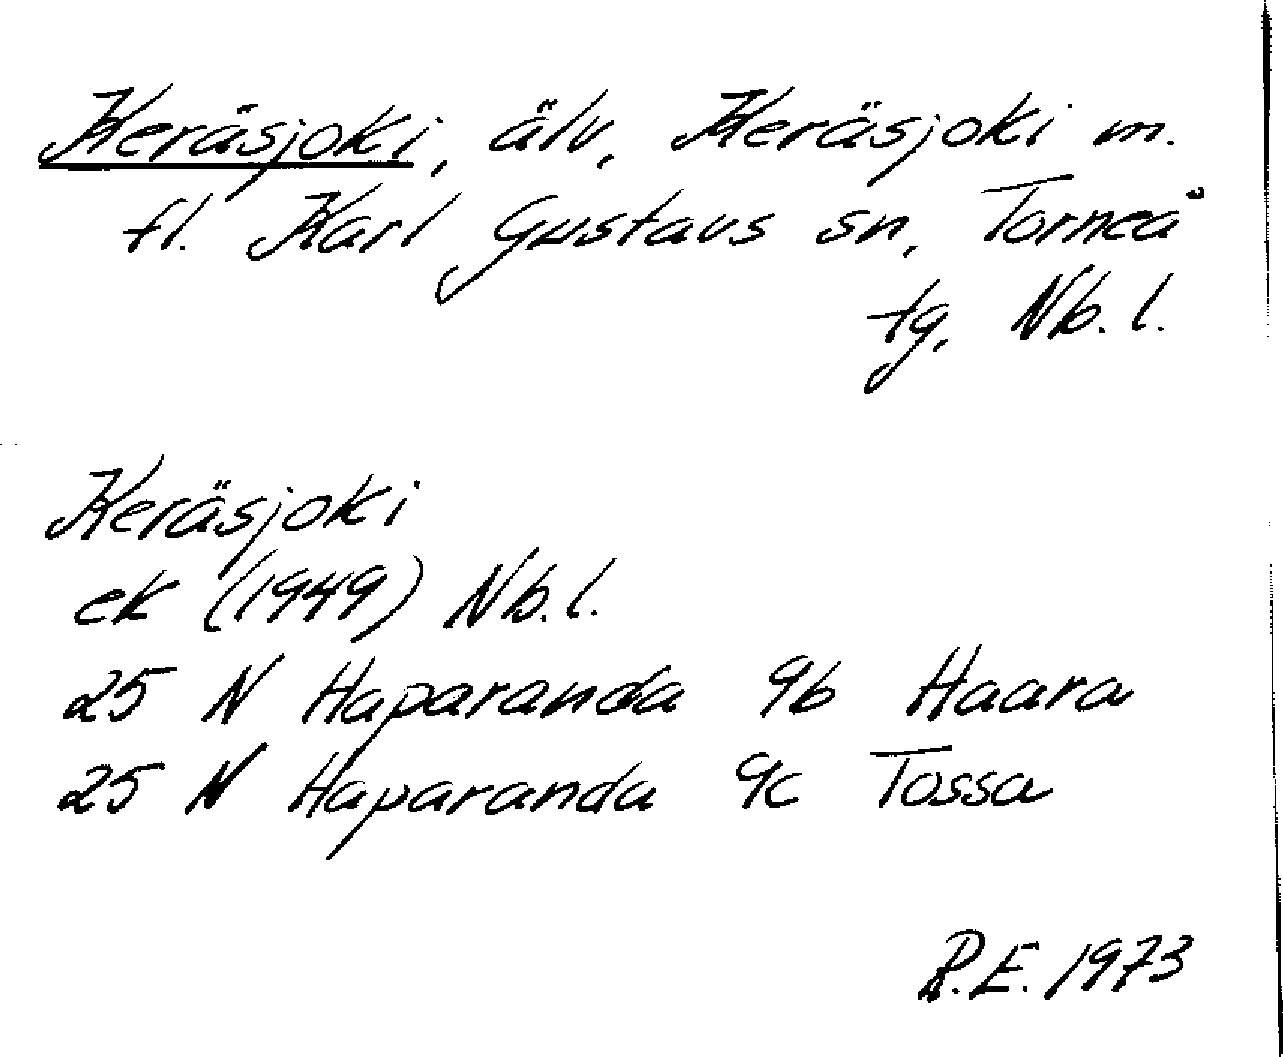 Keräsjoki, älv, Keräsjoki m.
fl. Karl Gustavs sn, Torneå
tg, Nb. l.
Keräsjoki
ek (1949) Nb. l.
25 N Haparanda 9b Haara
25 N Haparanda 9c Tossa
R.E. 1973